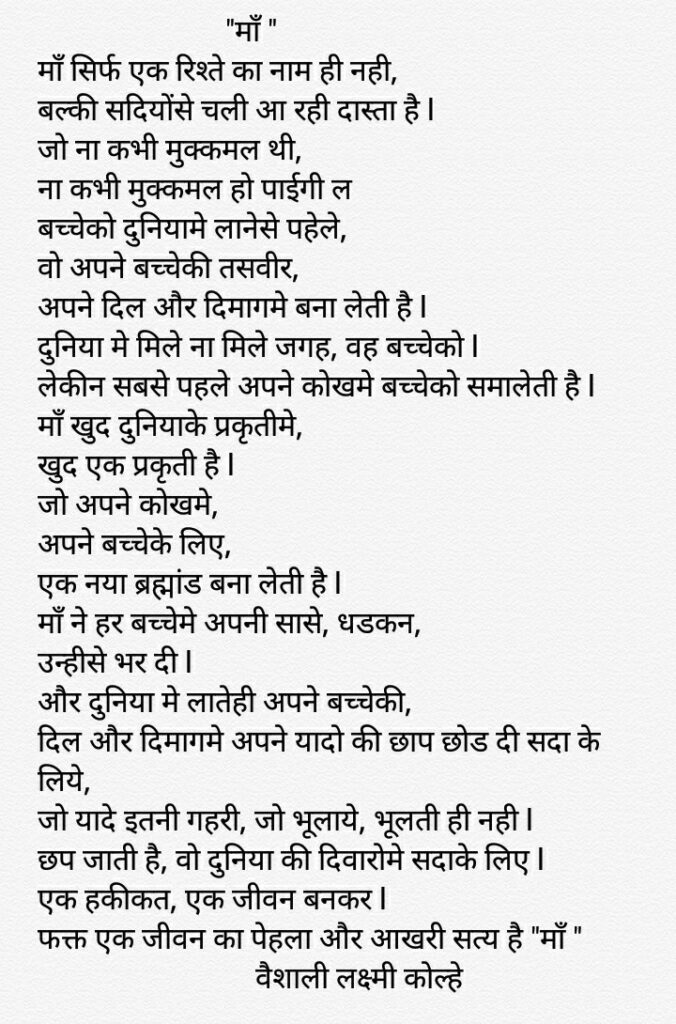 "माँ "
माँ सिर्फ एक रिश्ते का नाम ही नही,
बल्की सदियोंसे चली आ रही दास्ता है l
जो ना कभी मुक्कमल थी,
ना कभी मुक्कमल हो पाईगी ल
बच्चेको दुनियामे लानेसे पहेले,
वो अपने बच्चेकी तसवीर,
अपने दिल और दिमागमे बना लेती है l
दुनिया मे मिले ना मिले जगह, वह बच्चेको l
लेकीन सबसे पहले अपने कोखमे बच्चेको समालेती है l
माँ खुद दुनियाके प्रकृतीमे,
खुद एक प्रकृती है l
जो अपने कोखमे,
अपने बच्चेके लिए,
एक नया ब्रह्मांड बना लेती है l
माँ ने हर बच्चेमे अपनी सासे, धडकन,
उन्हीसे भर दी l
और दुनिया मे लातेही अपने बच्चेकी,
दिल और दिमागमे अपने यादो की छाप छोड दी सदा के
लिये,
जो यादे इतनी गहरी, जो भूलाये, भूलती ही नही l
छप जाती है, वो दुनिया की दिवारोमे सदाके लिए l
एक हकीकत, एक जीवन बनकर l
फक्त एक जीवन का पेहला और आखरी सत्य है "माँ "
वैशाली लक्ष्मी कोल्हे